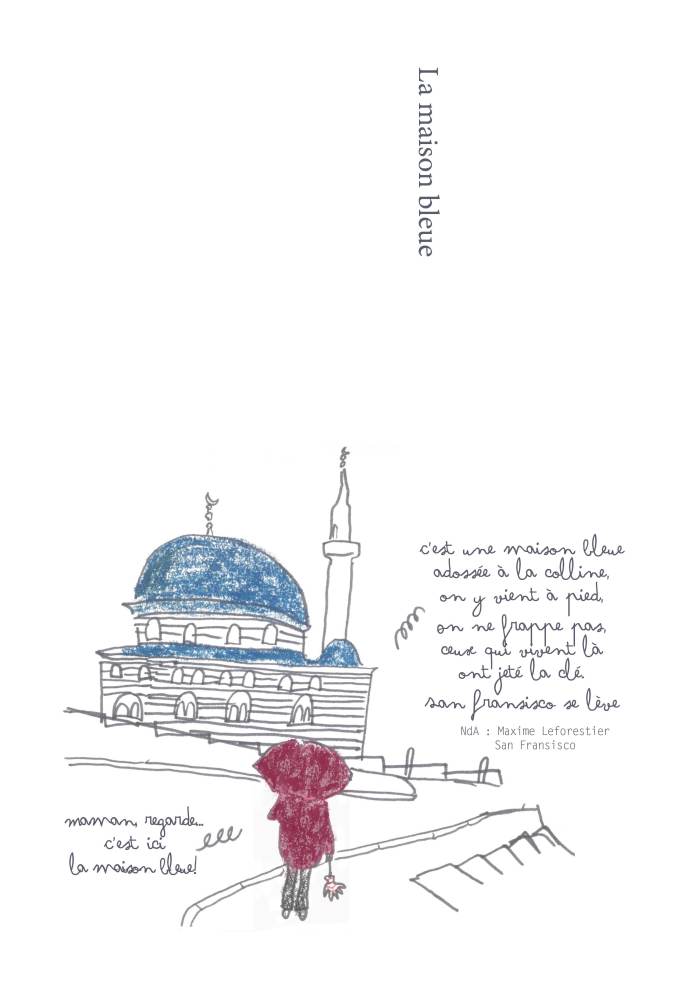 La maison bleue
c'est une maison bleue
adossée à la colline,
on y vient à pied,
on ne frappe pas,
ceux qui vivent là
ont jeté la clé.
san fransisco se lève
NdA : Maxime Leforestier
San Fransisco
maman, regarde...
c'est ici
la maison bleue!